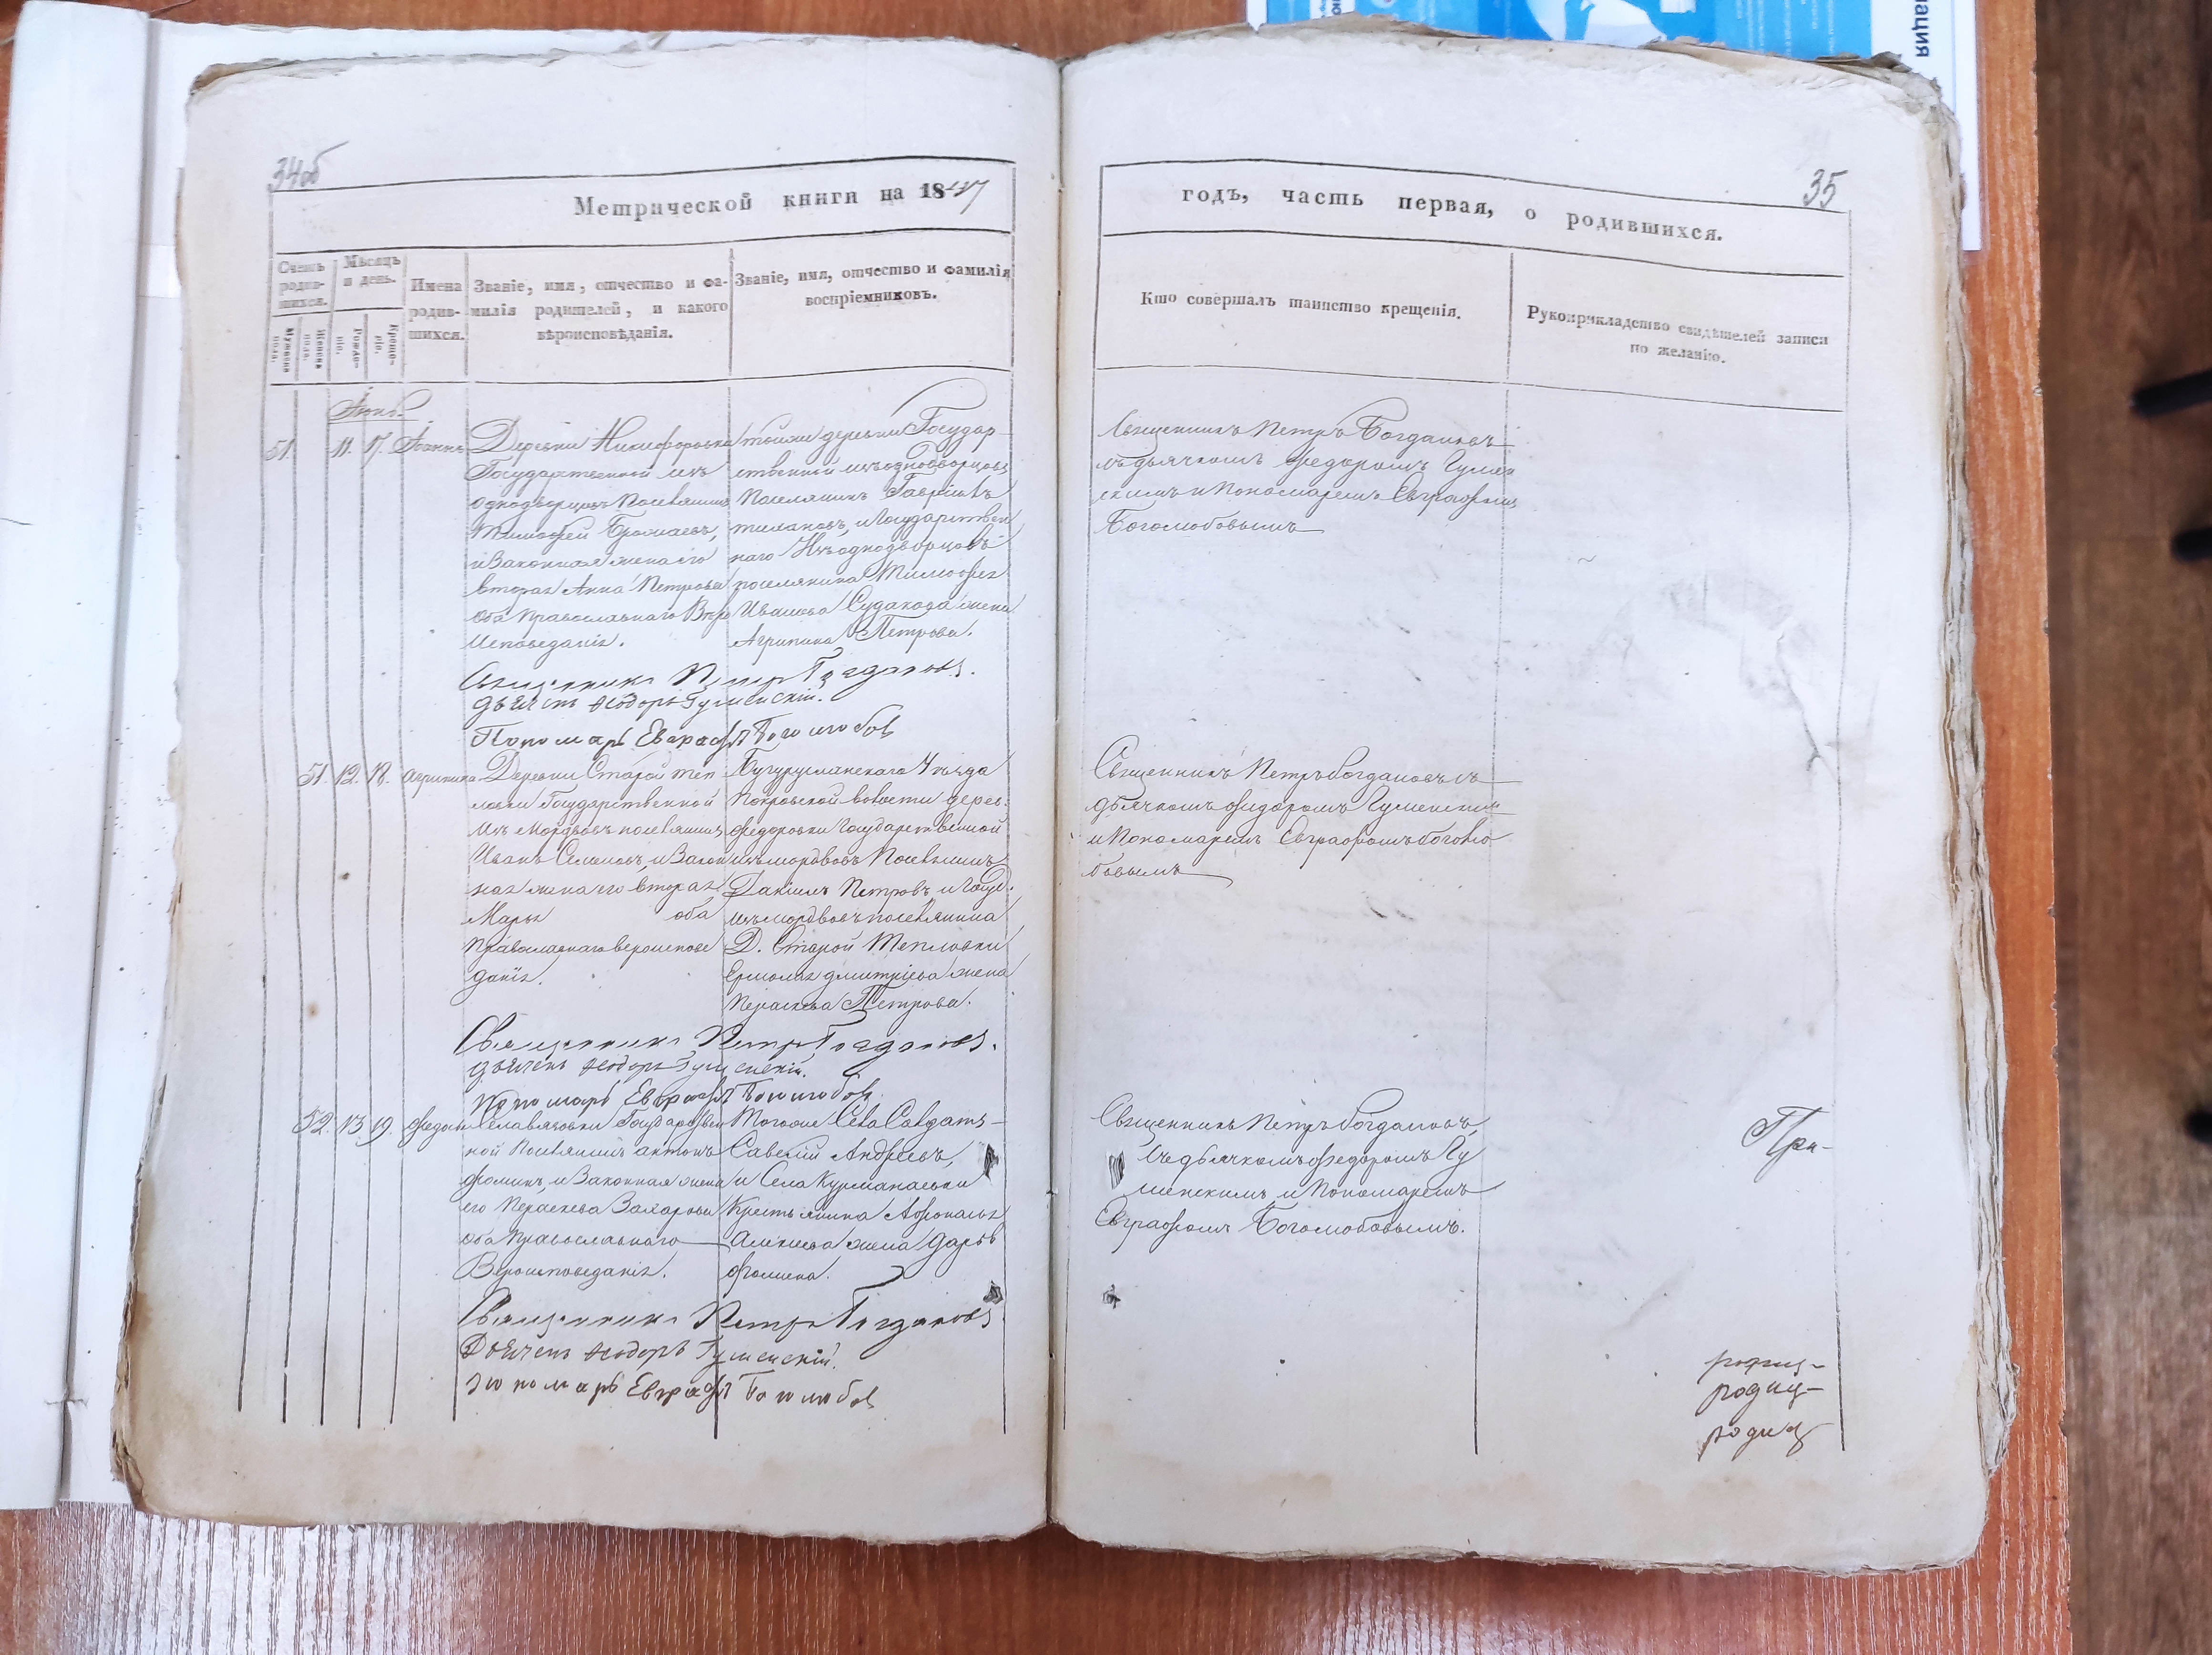 34об
Метрической книги на 1847
Счетъ родившихся.
Мѣсяцъ и день.
Мужеска пола.
Женска пола.
Рожденіе.
Крещеніе.
Имена родившихся.
Званіе, имя, отчество и фамилія родителей, и какого вѣроисповѣданія.
Званіе, имя, отчество и фамилія воспріемниковъ.
Іюнь
51. 11. 17. Іоаннъ
Деревни Никифоровки
Государственной изъ
однодворцовъ Поселянинъ
Тимофей
и Законная жена его
вторая Анна Петрова
оба Православнаго Веро
Исповеданія.
тойже деревни Государ-
ственной изъ однодворцовъ
Поселянинъ Гавріилъ
и Государствен
наго Изъ однодворцовъ
поселянина Тимофея
Иванова Судакова жена
Агрипина Петрова.
Священникъ Петръ Богдановъ.
дьячекъ Ѳеодоръ Гуменскій.
Пономарь Евграфъ Боголюбов
51. 12. 18. Агрипина
Деревни Старой теп
ловки Государственной
Изъ Мордвовъ поселянинъ
Иванъ Семеновъ, и Закон
ная жена его вторая
Марья оба
Православнаго вероиспове
данія.
Бугурусланскаго Уѣзда
Покровской волости дерев:
Федоровки Государственной
изъ мордвовъ Поселянинъ
Даніилъ Петровъ, и Госуд:
изъ мордвовъ поселянина
Д. Старой Тепловки
Ермолая Дмитріева жена
Параскева Петрова.
Священникъ Петръ Богдановъ.
дьячекъ Ѳеодоръ Гуменскій.
Пономарь Евграфъ Боголюбов
52. 13. 19.
Государствен
ной Поселянинъ антонъ
Фоминъ, и Законная жена
его Параскева Захарова
оба Православнаго
Вероисповеданія.
Тогоже Села Солдатъ
Савелій Андреевъ,
и Села Курманаевки
Крестьянина Афонасья
Алексеева жена Дарья
Фомина.
Священникъ Петръ Богдановъ
Дьячекъ Ѳеодоръ Гуменскій.
Пономарь Евграфъ Боголюбов
35
годъ, часть первая, о родившихся.
Кто совершалъ таинство крещенія.
Рукоприкладство свидѣтелей записи по желанію.
Священникъ Петръ Богдановъ
съ дьячкомъ Федоромъ Гумен
скимъ и Пономаремъ Евграфомъ
Боголюбовымъ
Священникъ Петръ Богдановъ съ
дьячкомъ Федоромъ Гуменскимъ
и Пономаремъ Евграфомъ Боголю
бовымъ
Священникъ Петръ Богдановъ,
съ дьячкомъ Федоромъ Гу
менскимъ и Пономаремъ
Евграфомъ Боголюбовымъ.
При-
родиц-
родиц-
родиц
ация